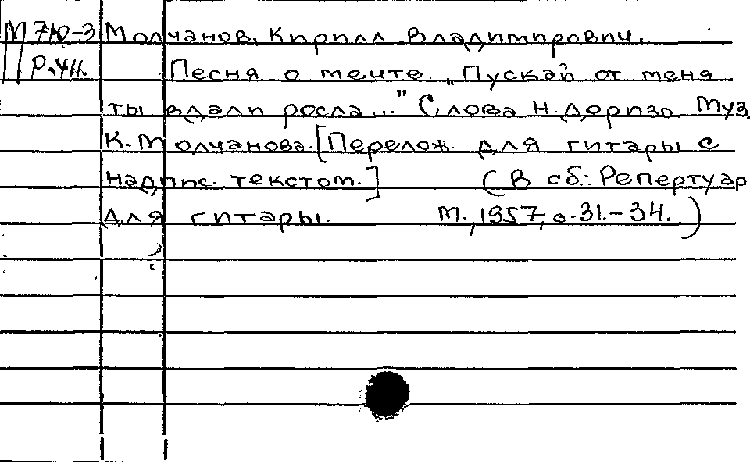 М 710-3 Молчанов, Кирилл Владимирович.
Р.чл. Песня о мечте. „Пускай от меня
ты вдали росла..." Слова Н. Доризо Муз.
К. Молчанова. [Перелож. для гитары с
надпис. текстом.] (В сб.: Репертуар
для гитары. М., 1957, с. 31.-34.)